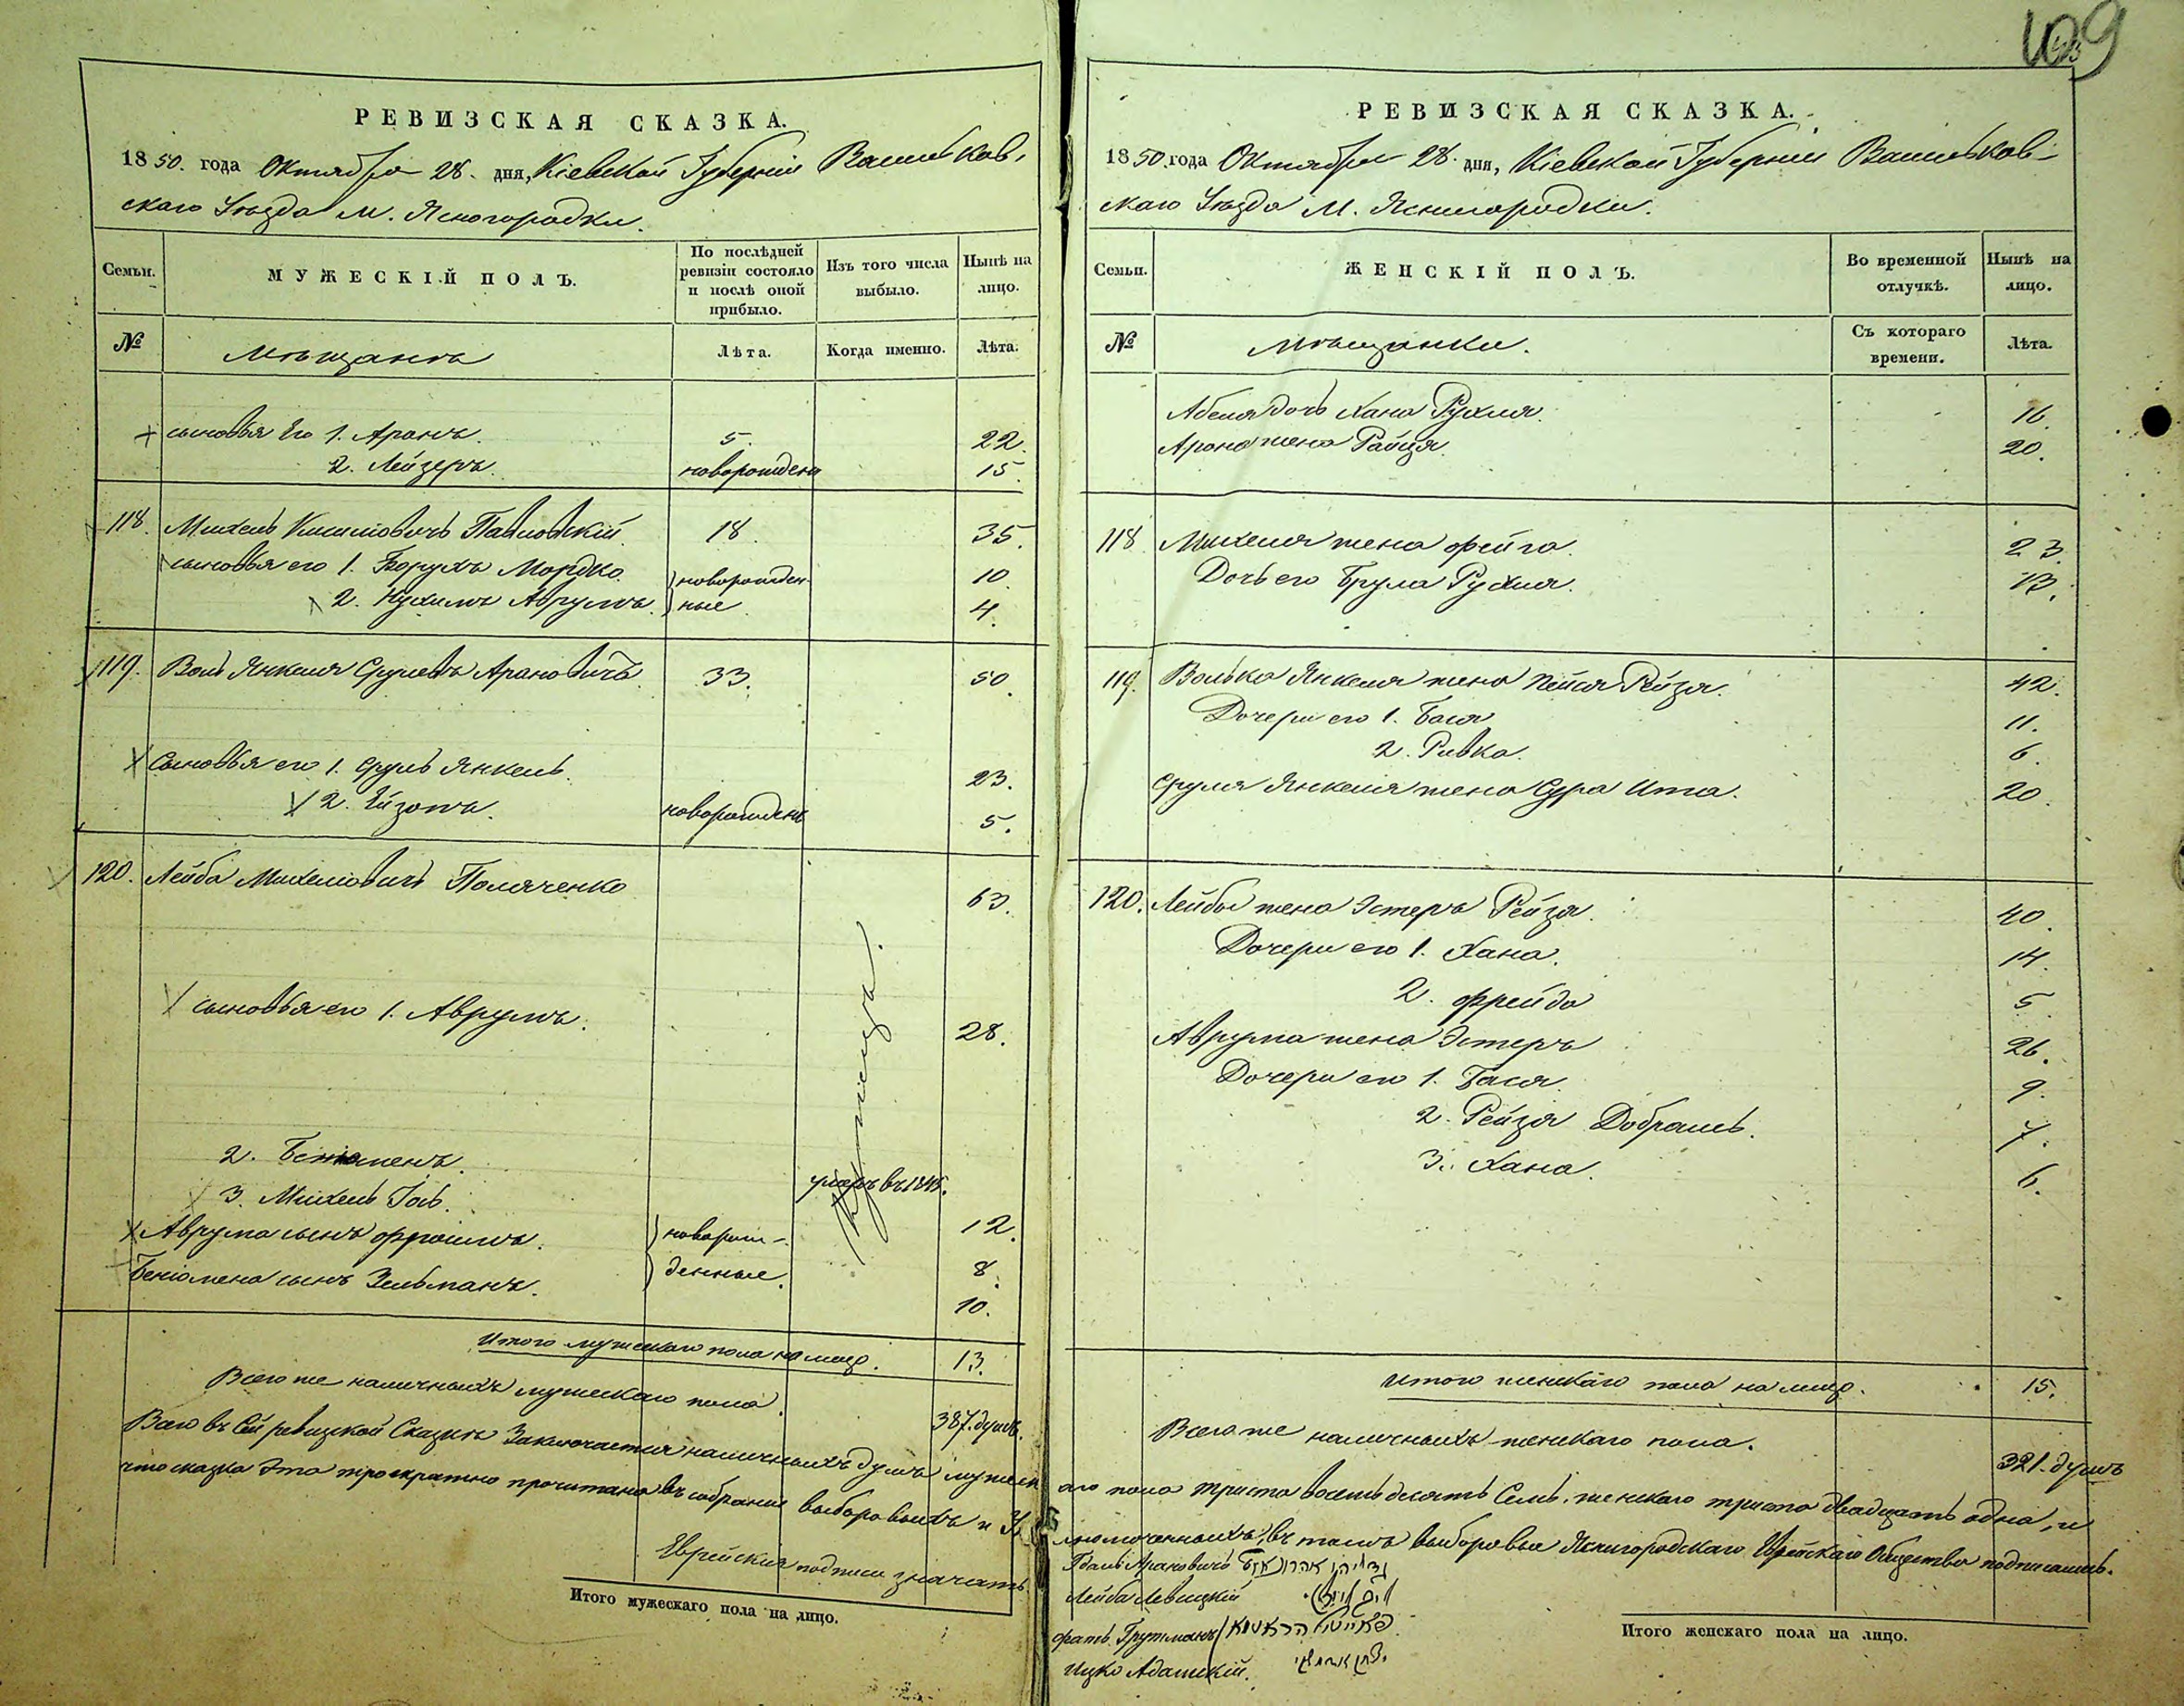 109
РЕВИЗСКАЯ СКАЗКА.
1850. года Октября 28. дня, Кіевской Губерніи Васильков-
скаго Уѣзда М. Ясногородки.
Семьи.
МУЖЕСКІЙ ПОЛЪ.
По послѣдней ревизіи состояло и послѣ оной прибыло.
Изъ того числа выбыло.
Нынѣ на лицо.
№
Мѣщанъ
Лѣта.
Когда именно.
Лѣта.
сыновья Его 1. Аронъ. 5. 22.
2. Лейзеръ. новорожденъ 15.
118. Михель Павловскій 18. 35.
сыновья его 1. Борухъ Мордко. новорожден- 10.
2. Нухимъ Аврумъ. ные 4.
119. Воль Янкель Срулевъ Арановичъ 33. 50.
Сыновья его 1. Сруль Янкель. 23.
2. Ейзонъ. новорожденъ 5.
120. Лейба Михелевичъ Поляченко 63.
сыновья его 1. Аврумъ. 28.
2. Беніаменъ. умеръ въ 1845.
3. Михель Іось. 12.
Аврума сынъ Фроимъ. новорож- 8.
Беніамена сынъ Зельманъ. денные. 10.
Итого мужескаго пола на лицо. 13.
Всего же наличныхъ мужескаго пола. 387. душъ.
Всего въ сей ревизской Сказкѣ Заключается наличныхъ душъ мужеск
что сказка Эта троекратно прочитана въ собраніи выборовыхъ и У
Еврейскія подписи значатъ.
Итого мужескаго пола на лицо.
РЕВИЗСКАЯ СКАЗКА.
1850. года Октября 28. дня, Кіевской Губерніи Васильков-
скаго Уѣзда М. Ясногородки.
Семьи.
ЖЕНСКІЙ ПОЛЪ.
Во временной отлучкѣ.
Нынѣ на лицо.
№
Мѣщанки.
Съ котораго времени.
Лѣта.
дочь Хана Рухля. 16.
Арона жена Райця. 20.
118 Михеля жена Фейга. 23.
Дочь его Рухля. 13.
119. Волько Янкеля жена Пейся Рейзя. 42.
Дочери его 1. Бася 11.
2. Ривка. 6.
Сруля Янкеля жена Сура Ита. 20.
120. Лейбы жена Эстеръ Рейзя. 40.
Дочери его 1. Хана. 14.
2. Фрейда 5.
Аврума жена Эстеръ 26.
Дочери его 1. Бася. 9.
2. Рейзя Добрышь. 7.
3. Хана. 6.
Итого женскаго пола на лицо. 15.
Всего же наличныхъ женскаго пола. 321. душъ
аго пола триста восемьдесятъ Семь, женскаго триста двадцать одна, и
лномоченныхъ, въ томъ выборовые Ясногородскаго Еврейскаго Общества подписались.
Арановичъ
Лейба Левицкій
Грутманъ
Ицко Адамскій.
Итого женскаго пола на лицо.